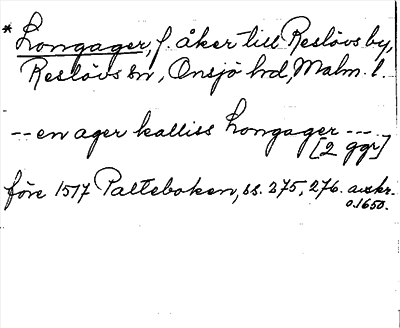 * Longager, f. åker till Reslövs by,
Reslövs sn, Onsjö hd, Malm. l.
-- en ager kalliss Longager ---
[2 ggr]
före 1517 Palteboken, ss. 275, 276. avskr.
o.1650.